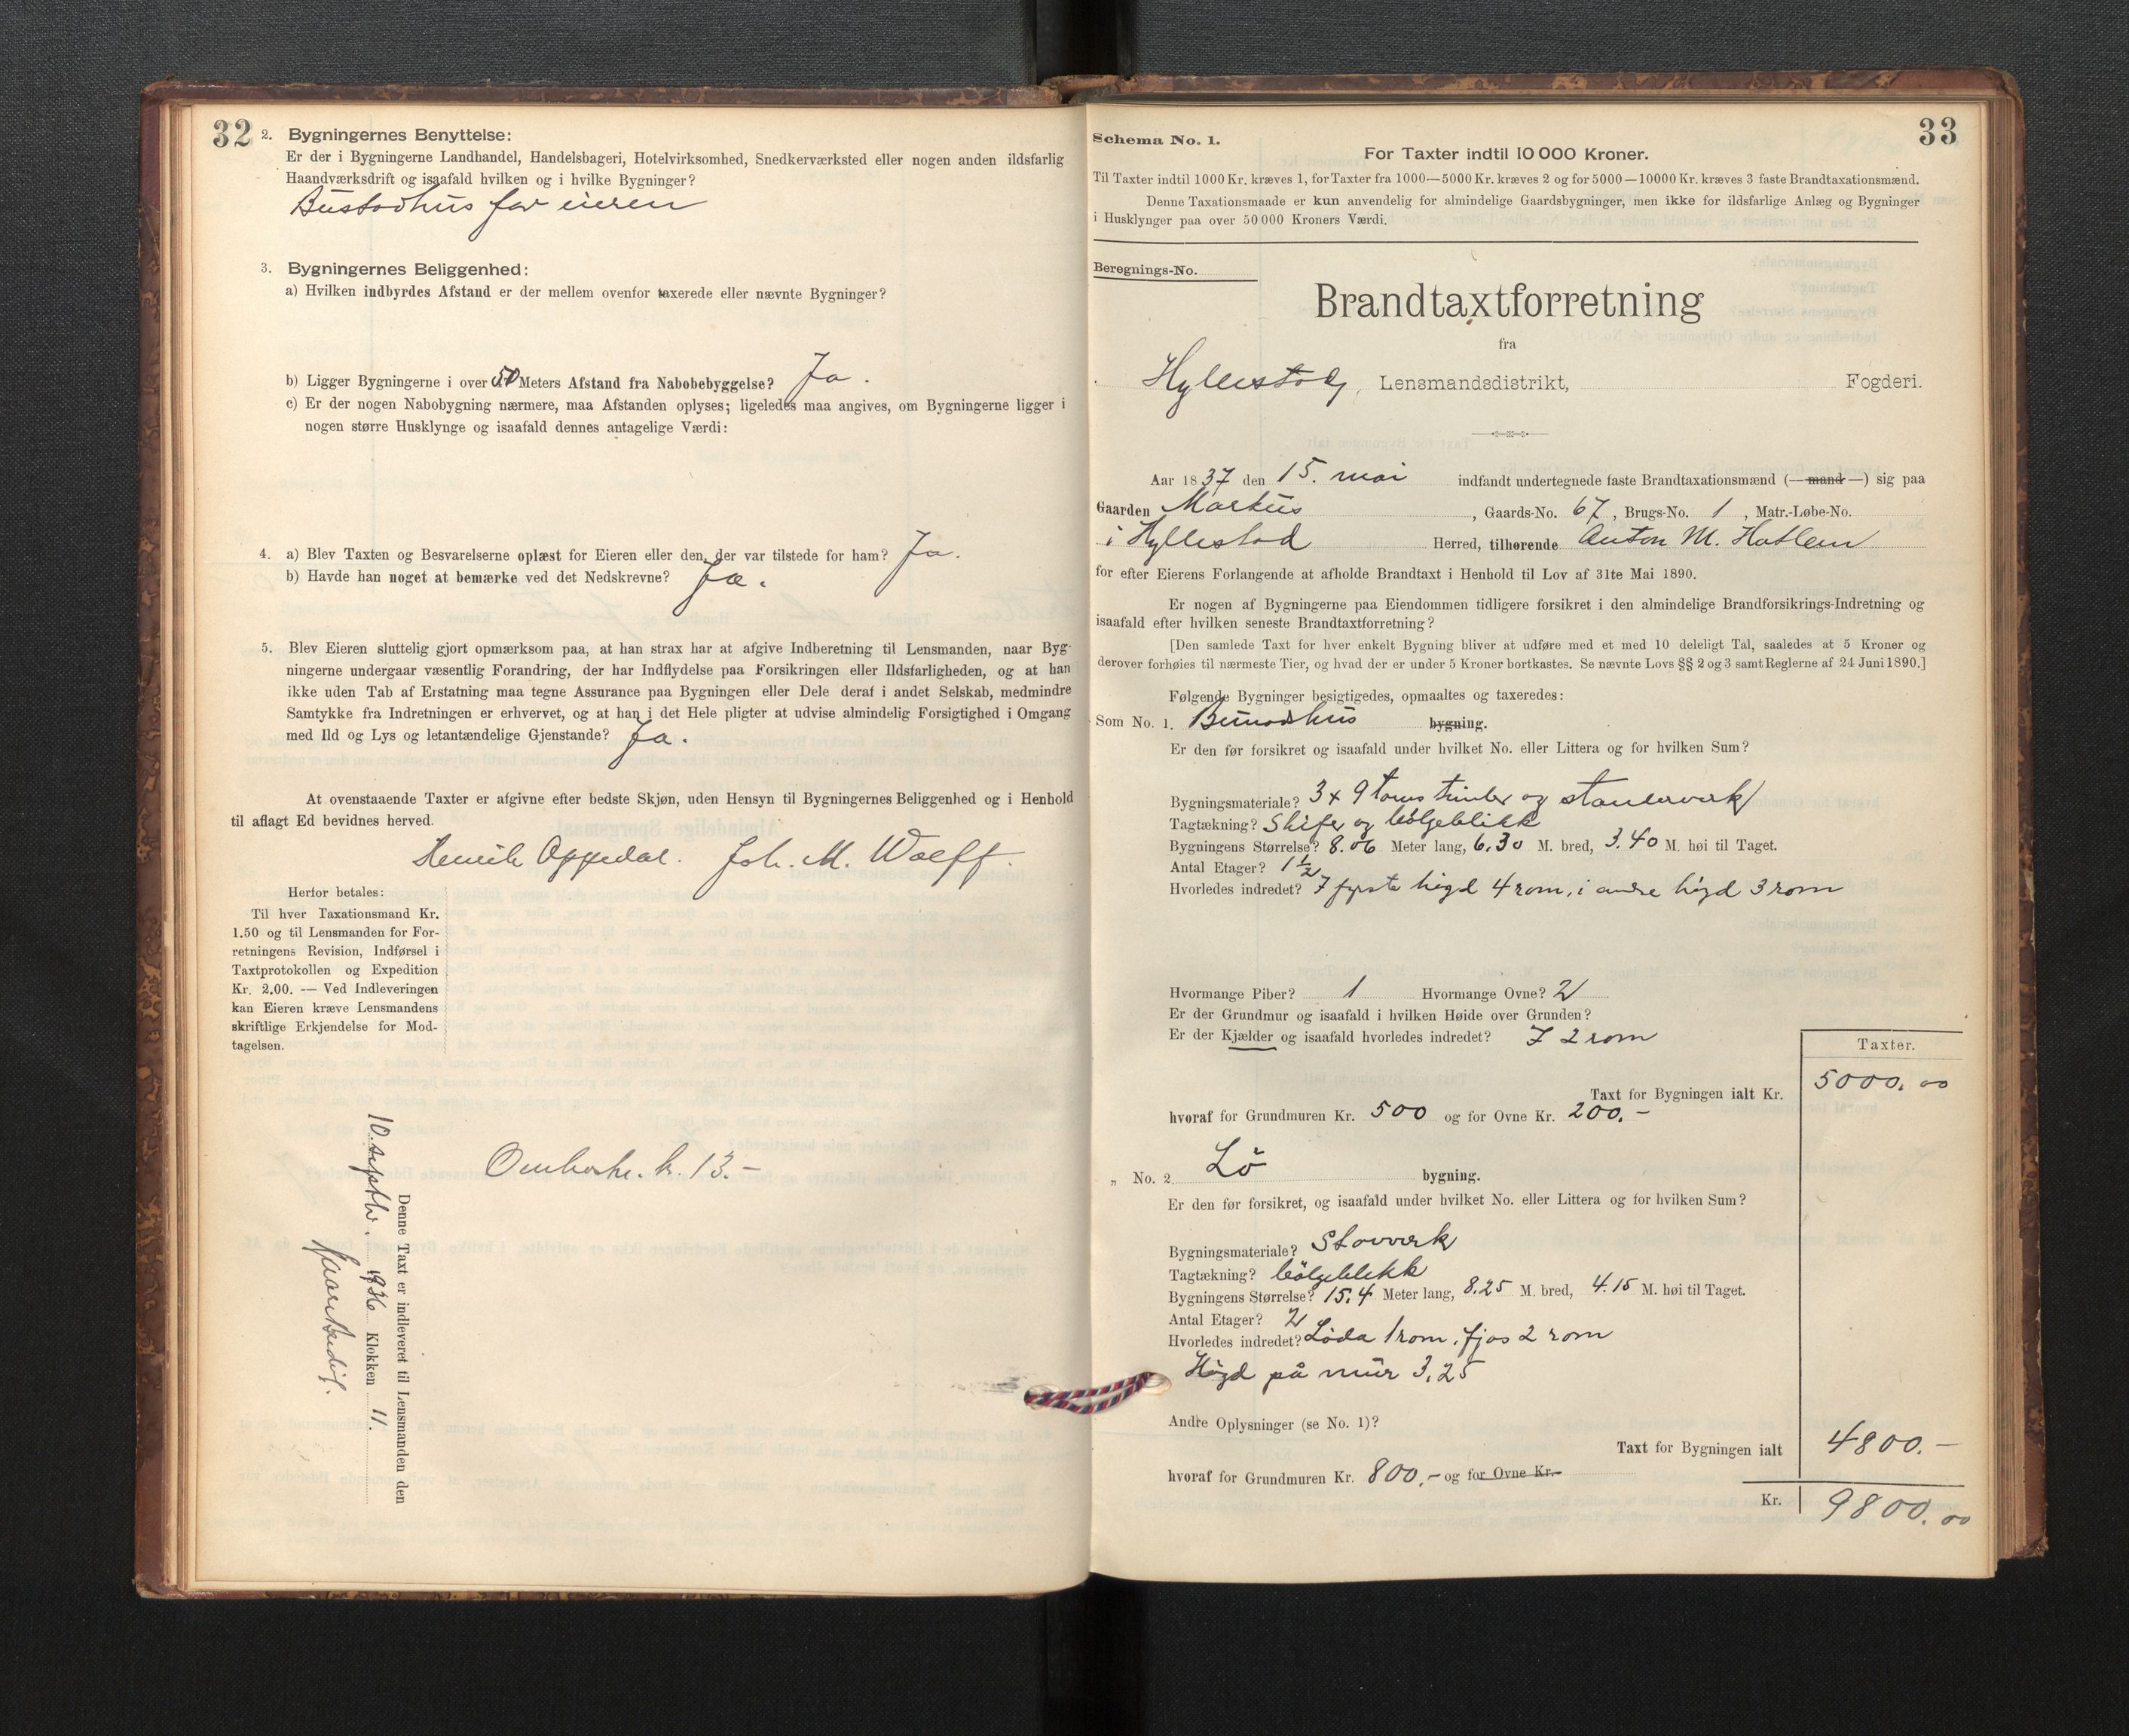 32
2. Bygningernes Benyttelse:
Er der i Bygningerne Landhandel, Handelsbageri, Hotelvirksomhed, Snedkerværksted eller nogen anden ildsfarlig
Haandværksdrift og isaafald hvilken og i hvilke Bygninger?
Bustadhus for eieren
3. Bygningernes Beliggenhed:
a) Hvilken indbyrdes Afstand er der mellem ovenfor taxerede eller nævnte Bygninger?
b) Ligger Bygningerne i over 50 Meters Afstand fra Nabobebyggelse? Ja.
c) Er der nogen Nabobygning nærmere, maa Afstanden oplyses; ligeledes maa angives, om Bygningerne ligger i
nogen større Husklynge og isaafald dennes antagelige Værdi:
4. a) Blev Taxten og Besvarelserne oplæst for Eieren eller den, der var tilstede for ham? Ja.
b) Havde han noget at bemærke ved det Nedskrevne? Ja.
5. Blev Eieren sluttelig gjort opmærksom paa, at han strax har at afgive Indberetning til Lensmanden, naar Byg-
ningerne undergaar væsentlig Forandring, der har Indflydelse paa Forsikringen eller Ildsfarligheden, og at han
ikke uden Tab af Erstatning maa tegne Assurance paa Bygningen eller Dele deraf i andet Selskab, medmindre
Samtykke fra Indretningen er erhvervet, og at han i det Hele pligter at udvise almindelig Forsigtighed i Omgang
med Ild og Lys og letantændelige Gjenstande? Ja.
At ovenstaaende Taxter er afgivne efter bedste Skjøn, uden Hensyn til Bygningernes Beliggenhed og i Henhold
til aflagt Ed bevidnes herved.
Henrik Oppedal. Joh. M. Wolff.
Herfor betales:
Til hver Taxationsmand Kr.
1.50 og til Lensmanden for For-
retningens Revision, Indførsel i
Taxtprotokollen og Expedition
Kr. 2.00. — Ved Indleveringen
kan Eieren kræve Lensmandens
skriftlige Erkjendelse for Mod-
tagelsen.
kr. 13.-
Denne Taxt er indleveret til Lensmanden den
10. septbr. 1936 Klokken 11.
33
Schema No. 1.
For Taxter indtil 10 000 Kroner.
Til Taxter indtil 1000 Kr. kræves 1, for Taxter fra 1000—5000 Kr. kræves 2 og for 5000—10000 Kr. kræves 3 faste Brandtaxationsmænd.
Denne Taxationsmaade er kun anvendelig for almindelige Gaardsbygninger, men ikke for ildsfarlige Anlæg og Bygninger
i Husklynger paa over 50 000 Kroners Værdi.
Beregnings-No.
Brandtaxtforretning
fra
Hyllestad, Lensmandsdistrikt, Fogderi.
Aar 1837 den 15. mai indfandt undertegnede faste Brandtaxationsmænd (— mand —) sig paa
Gaarden Markus, Gaards-No. 67, Brugs-No. 1, Matr.-Løbe-No.
i Hyllestad Herred, tilhørende Anton M. Hatlem
for efter Eierens Forlangende at afholde Brandtaxt i Henhold til Lov af 31te Mai 1890.
Er nogen af Bygningerne paa Eiendommen tidligere forsikret i den almindelige Brandforsikrings-Indretning og
isaafald efter hvilken seneste Brandtaxtforretning?
[Den samlede Taxt for hver enkelt Bygning bliver at udføre med et med 10 deleligt Tal, saaledes at 5 Kroner og
derover forhøies til nærmeste Tier, og hvad der er under 5 Kroner bortkastes. Se nævnte Lovs §§ 2 og 3 samt Reglerne af 24 Juni 1890.]
Følgende Bygninger besigtigedes, opmaaltes og taxeredes:
Som No. 1. bygning.
Er den før forsikret og isaafald under hvilket No. eller Littera og for hvilken Sum?
Bygningsmateriale? 3 x 9 toms timber og standerverk
Tagtækning? Skifer og bölgeblikk
Bygningens Størrelse? 8.06 Meter lang, 6,30 M. bred, 3.40 M. høi til Taget.
Antal Etager? 1 1/2
Hvorledes indredet? I fyrste högd 4 rom, i andre högd 3 rom
Hvormange Piber? 1 Hvormange Ovne? 2
Er der Grundmur og isaafald i hvilken Høide over Grunden?
Er der Kjælder og isaafald hvorledes indredet? I 2 rom
Taxter.
Taxt for Bygningen ialt Kr. 5000.00
hvoraf for Grundmuren Kr. 500 og for Ovne Kr. 200.-
„ No. 2 Lö bygning.
Er den før forsikret, og isaafald under hvilket No. eller Littera og for hvilken Sum?
Bygningsmateriale? Stavverk
Tagtækning? bölgeblikk
Bygningens Størrelse? 15.4 Meter lang, 8.25 M. bred, 4.15 M. høi til Taget.
Antal Etager? 2
Hvorledes indredet? Löda 1 rom, fjos 2 rom
Högd på mur 3.25
Andre Oplysninger (se No. 1)?
Taxt for Bygningen ialt 4800.-
hvoraf for Grundmuren Kr. 800.- og for Ovne Kr.
Kr. 9800.00